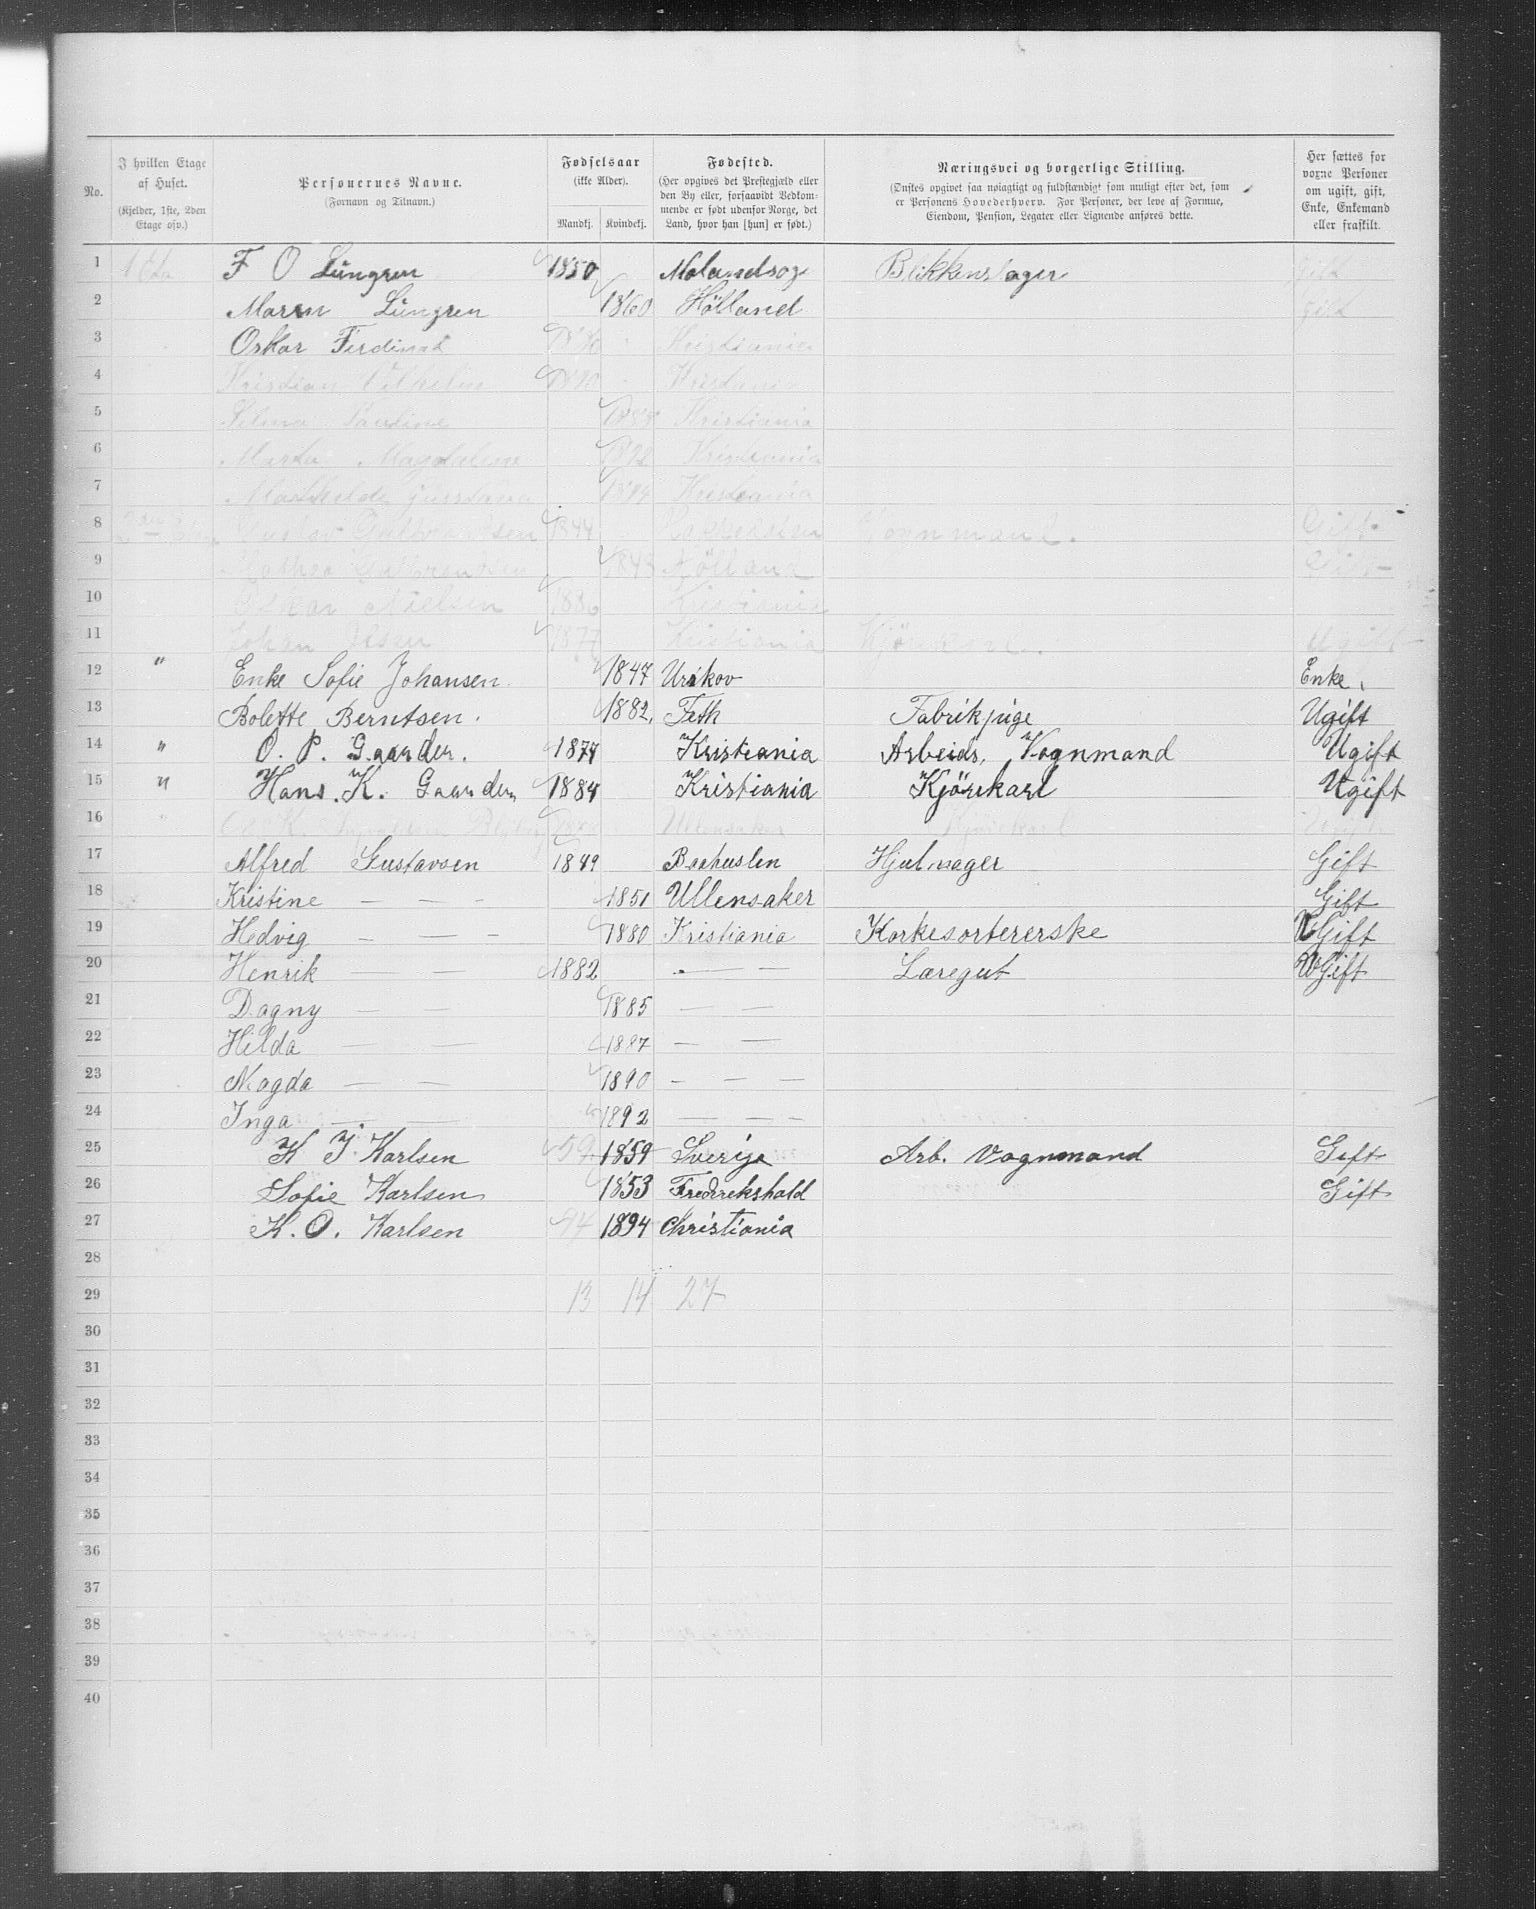 No. I hvilken Etage af Huset. (Kjelder, 1ste, 2den Etage osv.) Personernes Navne. (Fornavn og Tilnavn.) Fødselsaar (ikke Alder). Mandkj. Kvindekj. Fødested. (Her opgives det Prestegjæld eller den By eller, forsaavidt Vedkommende er født udenfor Norge, det Land, hvor han [hun] er født.) Næringsvei og borgerlige Stilling. (Ønskes opgivet saa nøiagtigt og fuldstændigt som muligt efter det, som er Personens Hovederhverv. For Personer, der leve af Formue, Eiendom, Pension, Legater eller Lignende anføres dette. Her sættes for voxne Personer om ugift, gift, Enke, Enkemand eller fraskilt.
1 F O Lüngren 1850 Blikkenslager Gift
2 Maren Lüngren 1860 Hölland Gift
3 Oskar Ferdinat Kristiania
4 Kristian Vilhelm 1890 Kristiania
5 1888 Kristiania
6 Marta Magdalene Kristiania
7 1894 Kristiania
8 Gustav Gulbrandsen 1844 Vognmand. Gift.
9 Hölland Gift
10 Oskar Nielsen 1880 Kristiania
11 Johan Olsen 1877 Kristiania Kjørekarl. Ugift
12 " Enke Sofie Johansen. 1847 Urskov Enke.
13 Bolette Berntsen. 1882, Feth Fabrikpige Ugift
14 " O. P. Gaarder. 1877 Kristiania Arbeids, Vognmand Ugift
15 " Hans. K. Gaarder 1884 Kristiania Kjörekarl Ugift
16 Ullensaker Kjørekarl Ugift
17 Alfred Gustavsen 1849 Baahuslen Hjulmager Gift
18 Kristine — — - 1851 Ullensaker Gift
19 Hedvig — — - 1880 Kristiania Korkesortererske UGift
20 Henrik — — 1882 - — Læregut UGift
21 Dagny — — 1885 — —
22 Hilda — — 1887 — —
23 Magda — — 1890 - — —
24 Inga — — 1892 — — —
25 K J. Karlsen 59 1859 Sverige Arb. Vognmand Gift
26 Sofie Karlsen 1853 Frederekshald Gift
27 K. O. Karlsen 94 1894 Christiania
28
29 13 14 27
30
31
32
33
34
35
36
37
38
39
40